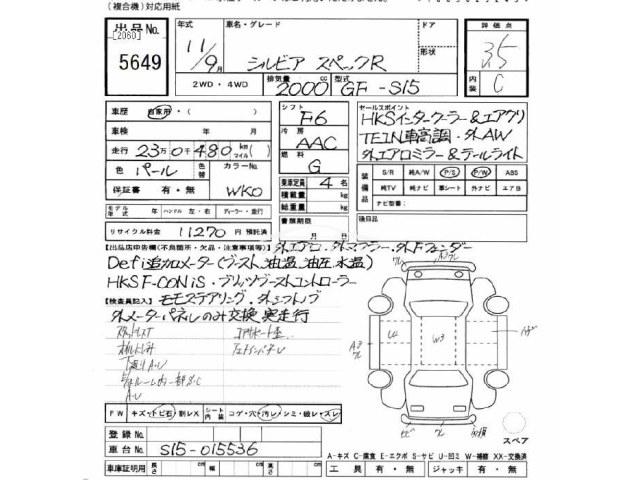 (複合機)対応用紙
出品No.
[2060]
5649
年式
11/9月
車名・グレード
シルビア スペックR
ドア
形状
評価点
3.5
内装
C
2WD・4WD
排気量
2000 cc
型式
GF-S15
車歴 自家用・( )
車検 年 月
走行 23万0千480 km マイル
色 パール
色替
カラーNo. WK0
保証書 有・無
シフト F6
冷房 AAC
燃料 G
乗車定員 4 名
積載量 kg
総重量 kg
書類期限 月 日
セールスポイント
HKSインタークーラー&エアクリ
TEIN車高調・外AW
外エアロミラー&テールライト
装備品
S/R 純A/W P/S P/W ABS
純TV 純ナビ 革シート 外ナビ エアB
ナビ型番( )
後日品
モデル年式 年 ハンドル 左・右 ディーラー・並行
リサイクル料金 11270 円 預託済
【出品店申告欄(不良箇所・欠品・注意事項等)】外エアロ・外マフラー・外Fフェンダー
Defi追加メーター(ブースト、油温、油圧、水温)
HKS F-CONiS・ブリッツブーストコントローラー
【検査員記入】モモステアリング・外シフトノブ
外メーターパネルのみ交換 実走行
下廻りA・U
A・U
U4
W3
PW キズ・トビ石・割レX
シート内装 コゲ・穴・汚レ・シミ・破レ・スレ
スペア
登録No.
車台No. S15-015536
車庫証明用 長さ cm 幅 cm 高さ cm
A-キズ C-腐食 E-エクボ S-サビ U-凹ミ W-補修 XX-交換済
工具 有・無 ジャッキ 有・無